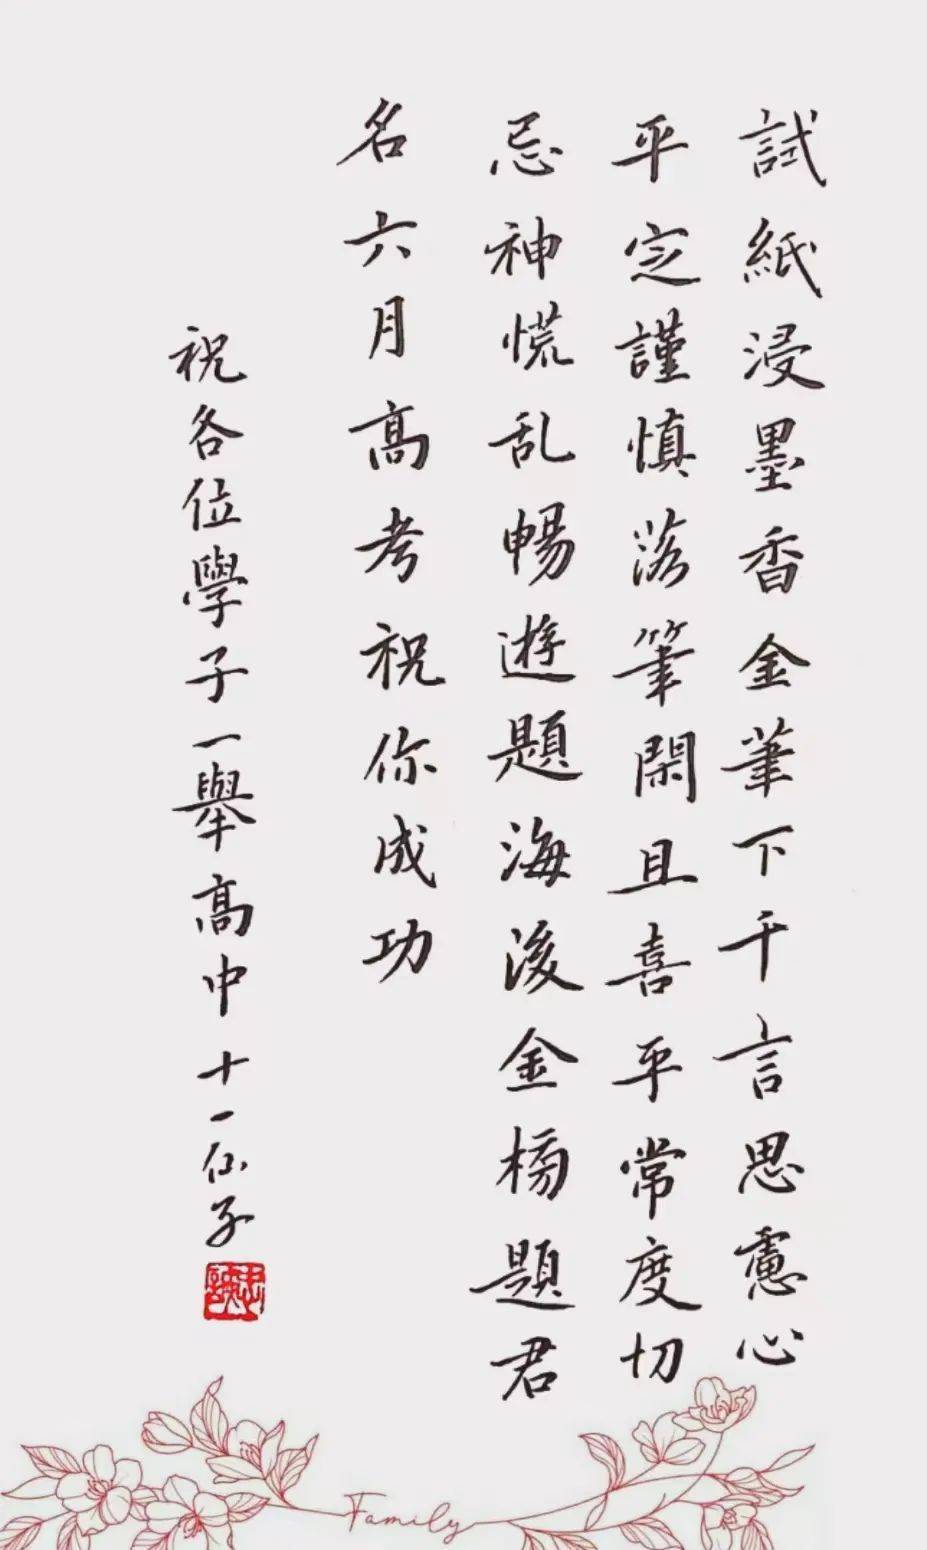 試紙浸墨香金筆下千言思慮心
平定謹慎落筆閑且喜平常度切
忌神慌乱暢遊題海後金榜題君
名六月高考祝你成功
祝各位學子一舉高中 十一仙子
Family